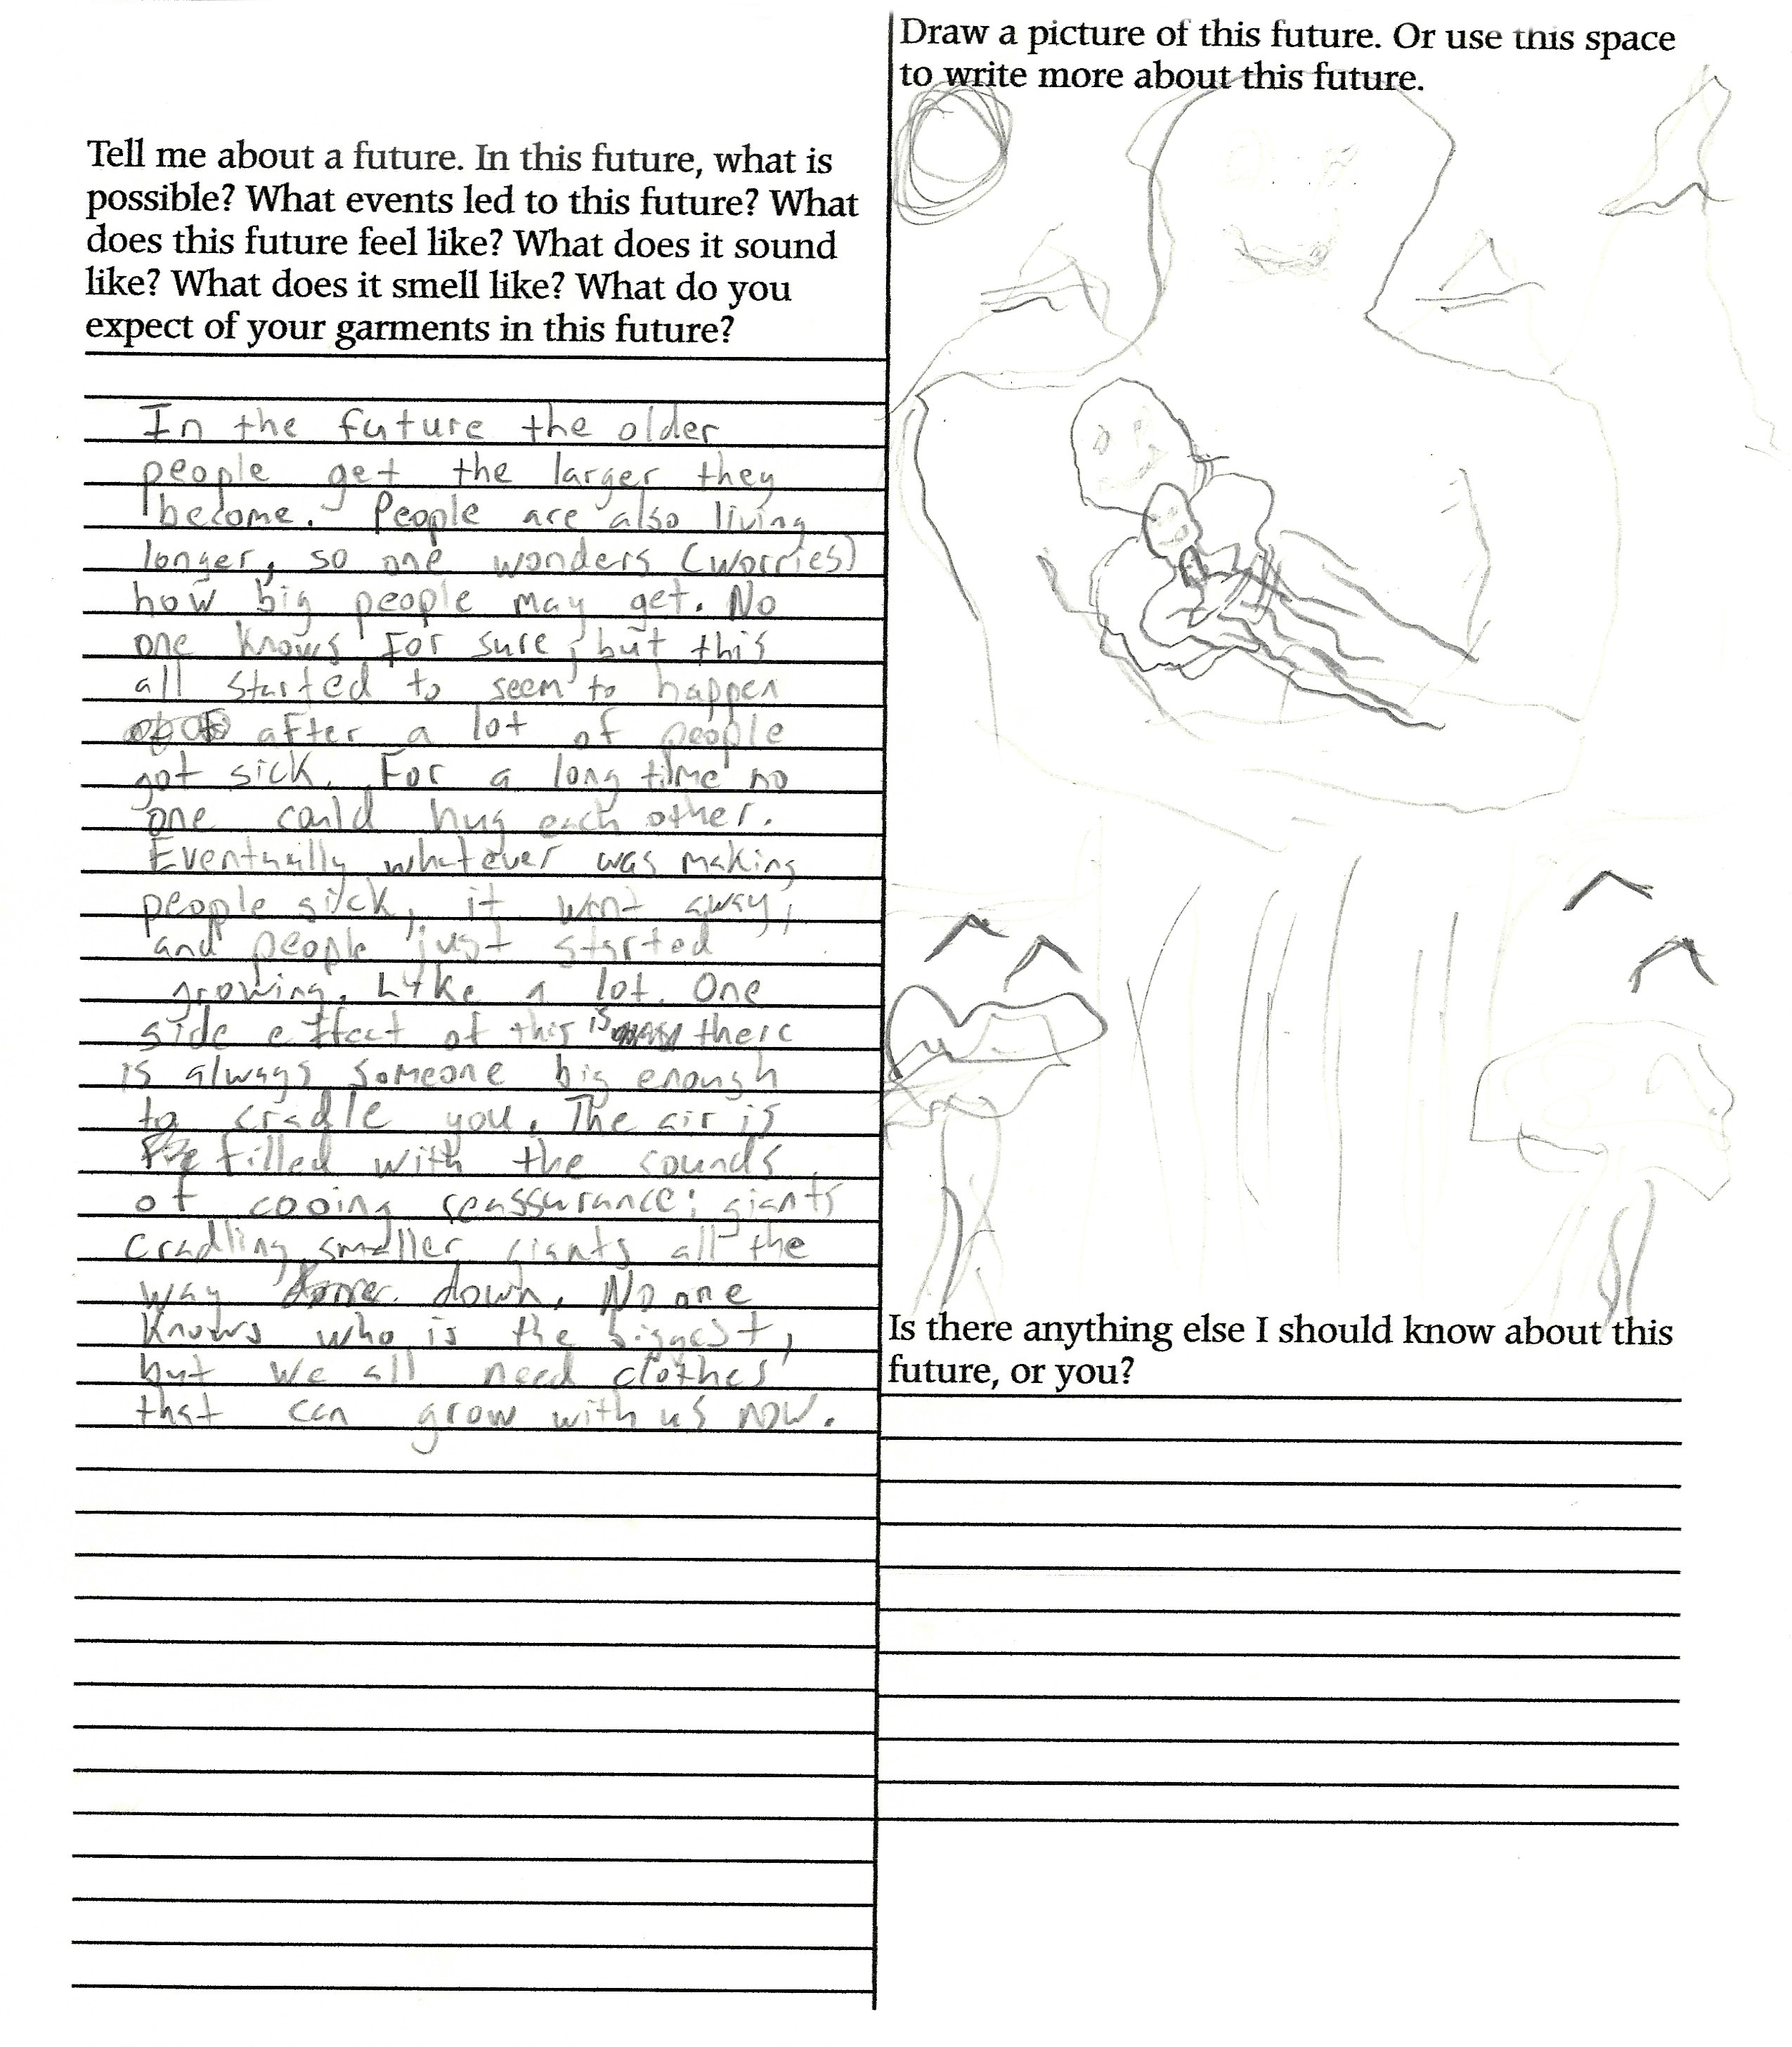 Tell me about a future. In this future, what is
possible? What events led to this future? What
does this future feel like? What does it sound
like? What does it smell like? What do you
expect of your garments in this future?
In the future the older
people get the larger they
become. People are also living
longer, so one wonders (worries)
how big people may get. No
one knows for sure, but this
all started to seem to happen
after a lot of people
got sick. For a long time no
one could hug each other.
Eventually whatever was making
people sick, it went away,
and people just started
growing. Like a lot. One
side effect of this is there
is always someone big enough
to cradle you. The air is
filled with the sounds
of cooing reassurance; giants
cradling smaller giants all the
way down. No one
knows who is the biggest,
but we all need clothes
that can grow with us now.
Draw a picture of this future. Or use this space
to write more about this future.
Is there anything else I should know about this
future, or you?